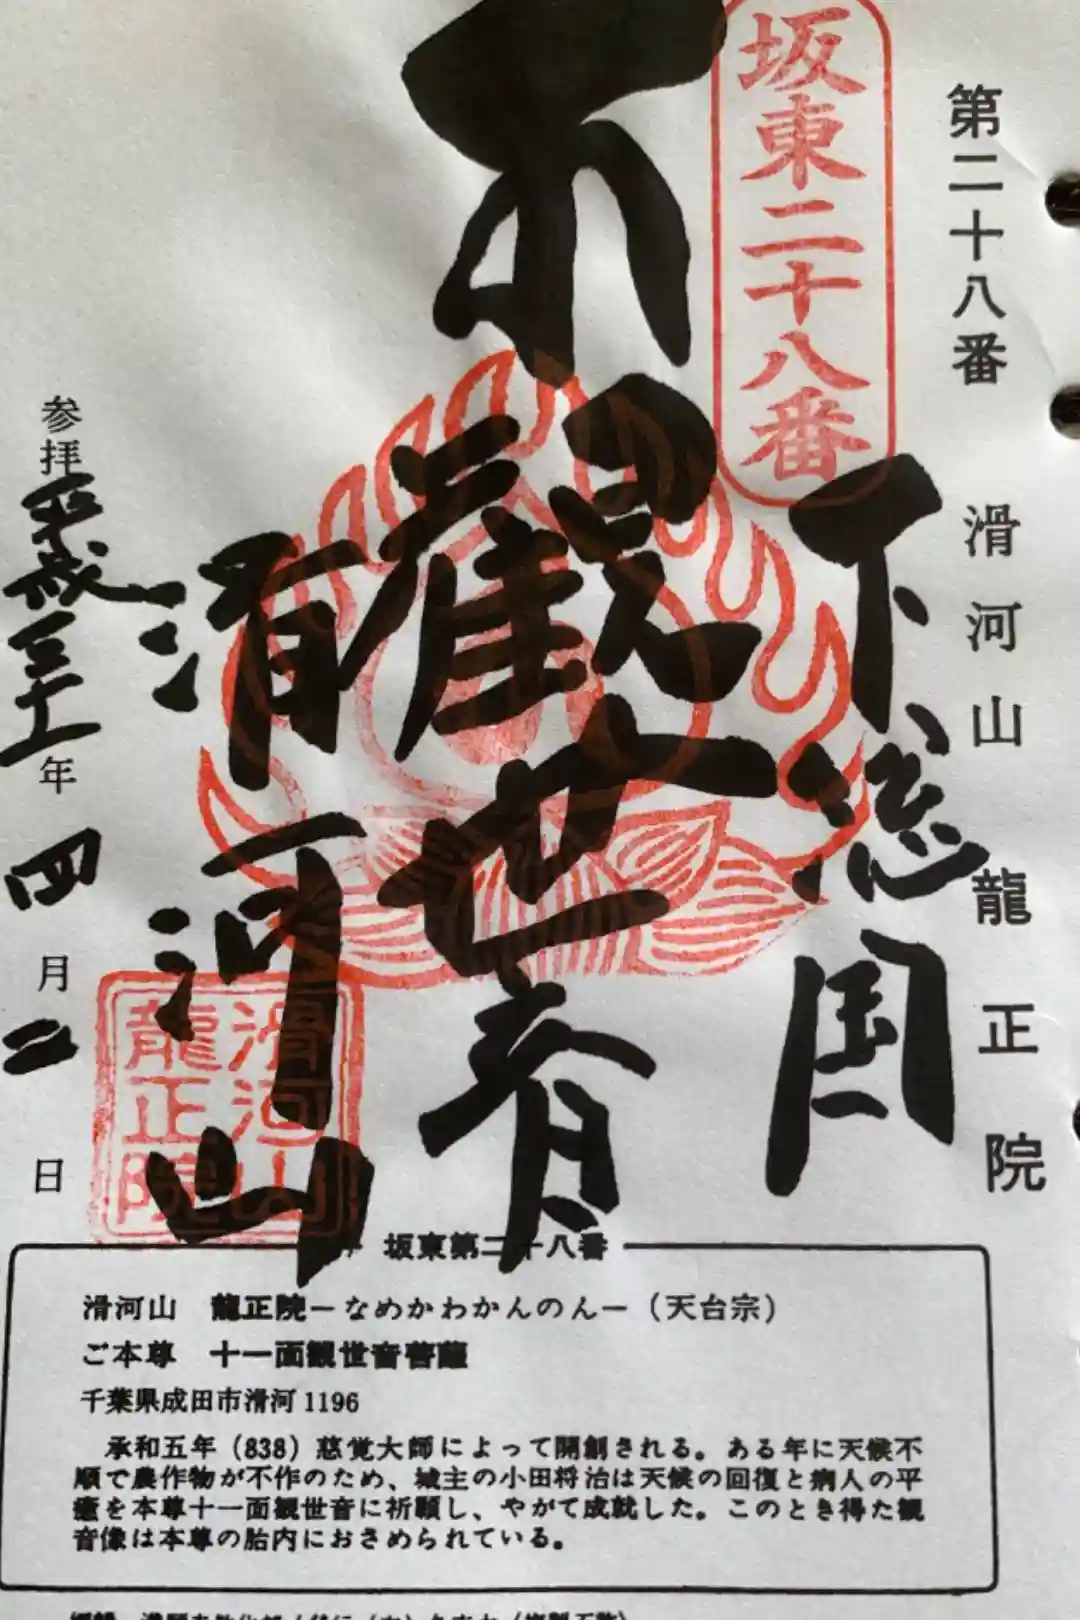 第二十八番 滑河山 龍正院
坂東二十八番
下総国
観世音
滑河山
滑河山
龍正院
参拝 平成三十一年 四月二日
坂東第二十八番
滑河山 龍正院－なめかわかんのん－（天台宗）
ご本尊 十一面観世音菩薩
千葉県成田市滑河1196
承和五年（838）慈覚大師によって開創される。ある年に天候不
順で農作物が不作のため、城主の小田将治は天候の回復と病人の平
癒を本尊十一面観世音に祈願し、やがて成就した。このとき得た観
音像は本尊の胎内におさめられている。